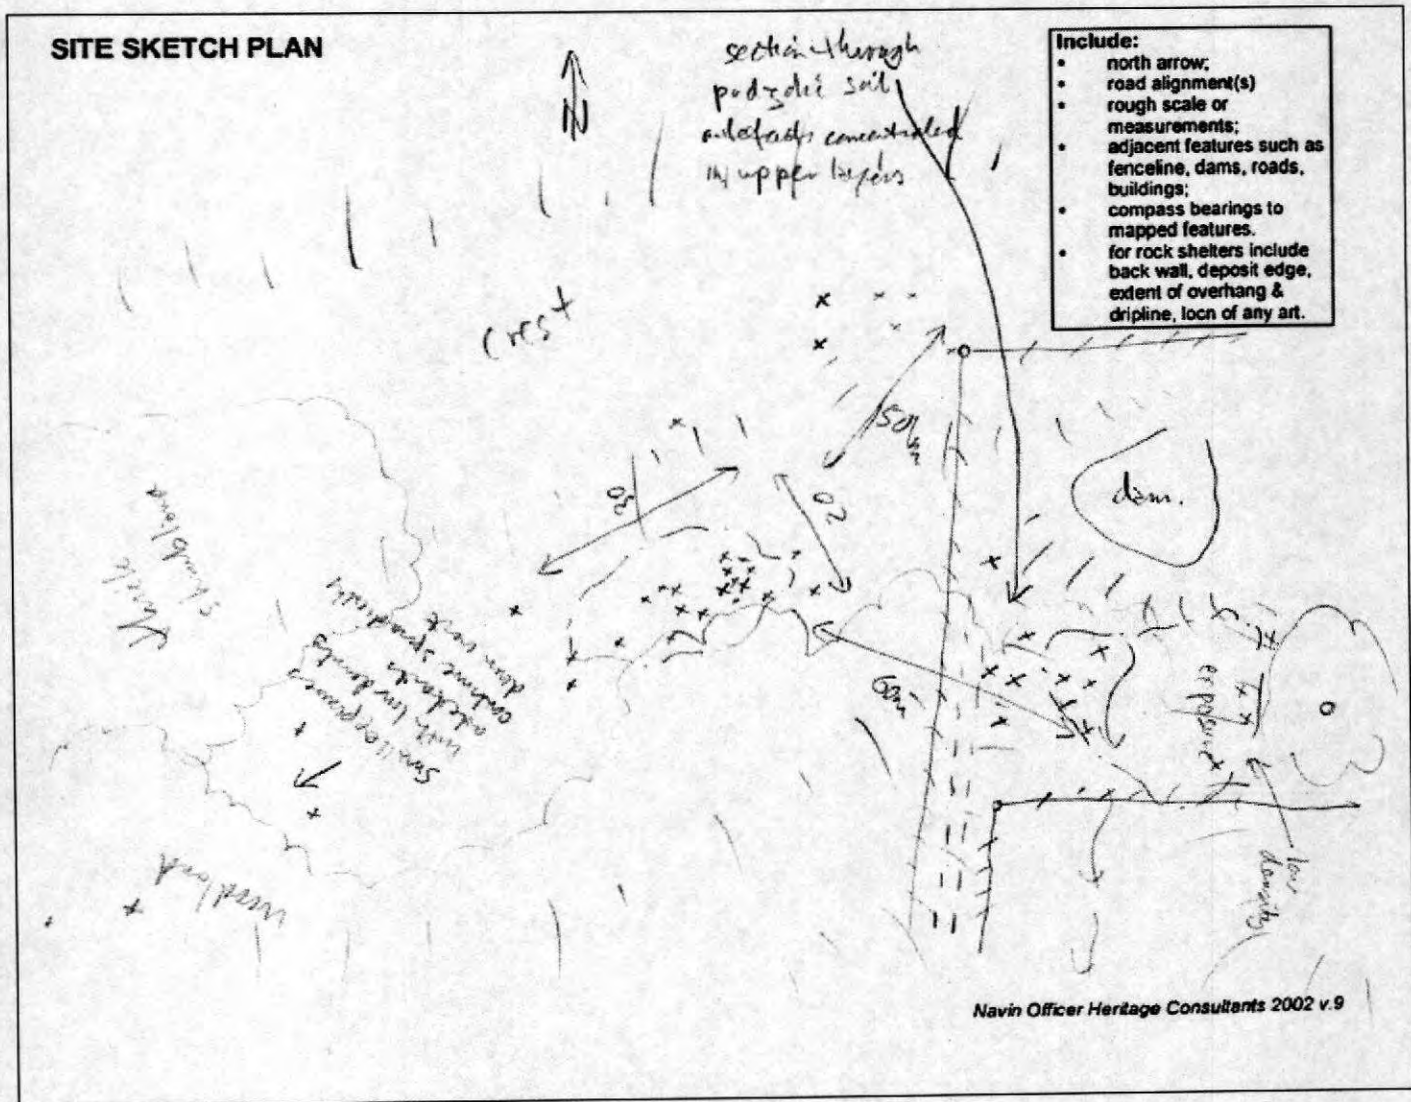 SITE SKETCH PLAN
N
section through
podzolic soil
artefacts concentrated
in upper layers
Include:
• north arrow;
• road alignment(s)
• rough scale or
measurements;
• adjacent features such as
fenceline, dams, roads,
buildings;
• compass bearings to
mapped features.
• for rock shelters include
back wall, deposit edge,
extent of overhang &
dripline, locn of any art.
crest
50m
30
20
dam.
thick
shrubland
small exposures
with low density
artefacts
continue sporadically
down west
60m
exposure
woodland
low
density
Navin Officer Heritage Consultants 2002 v.9